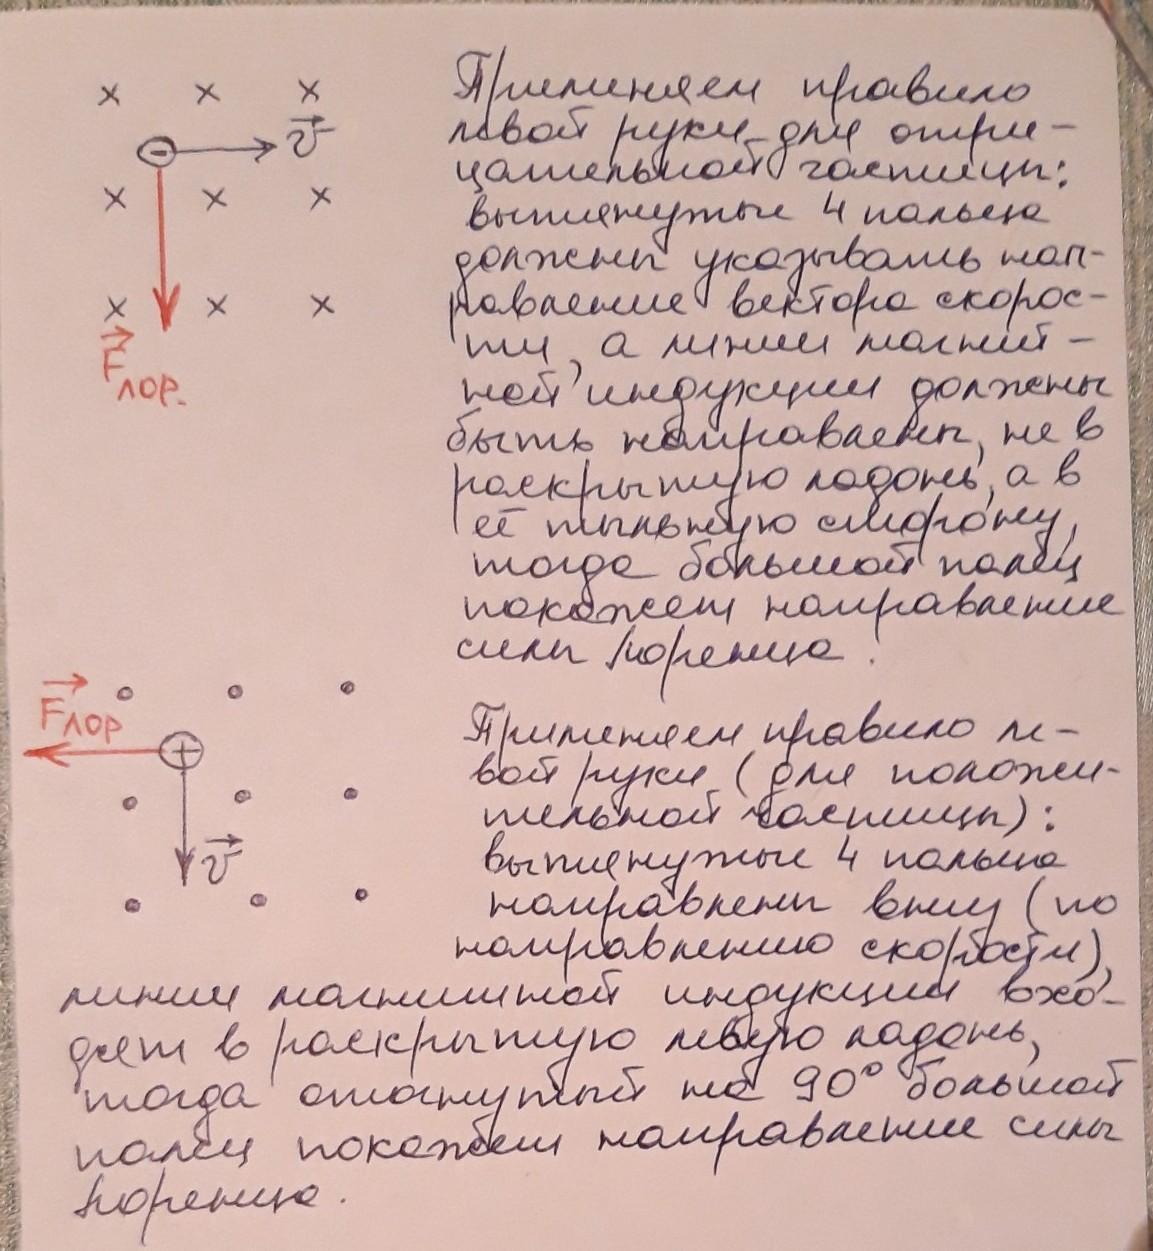 Применяем правило
левой руки для отри-
цательной частицы:
вытянутые 4 пальца
должны указывать нап-
равление вектора скорос-
ти, а линии магнит-
ной индукции должны
быть направлены, не в
раскрытую ладонь, а в
её тыльную сторону,
тогда большой палец
покажет направление
силы Лоренца.
v
F лор.
Применяем правило ле-
вой руки (для положи-
тельной частицы):
вытянутые 4 пальца
направлены вниз (по
направлению скорости),
линии магнитной индукции вхо-
дят в раскрытую левую ладонь,
тогда отогнутый на 90° большой
палец покажет направление силы
Лоренца.
F лор
v